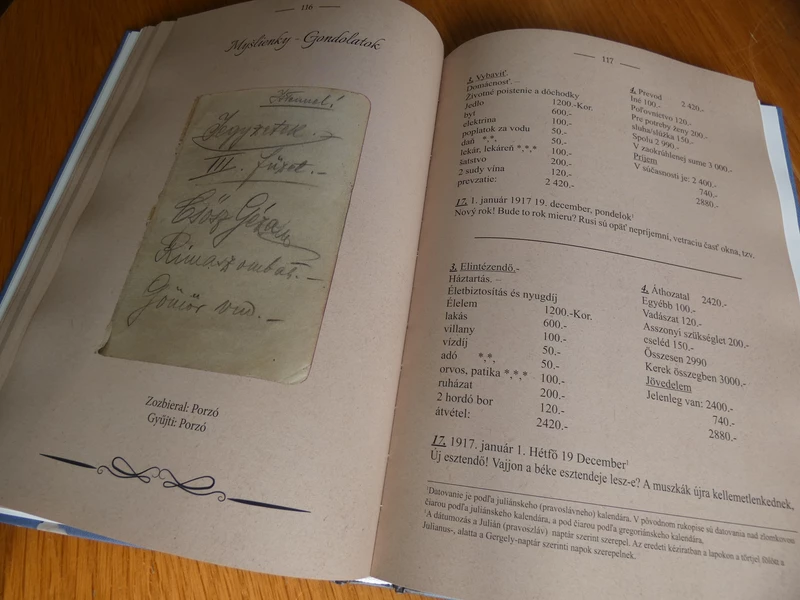 116
Myšlienky - Gondolatok
Jegyzetek.-
III. füzet.-
Csősz Géza
Rimaszombat.-
Gömör vm.-
Zozbieral: Porzó
Gyűjti: Porzó
117
3. Vybaviť.
Domácnosť. –
Životné poistenie a dôchodky
Jedlo 1200.-Kor.
byt 600.-
elektrina 100.-
poplatok za vodu 50.-
daň *,*, 50.-
lekár, lekáreň *,*,* 100.-
šatstvo 200.-
2 sudy vína 120.-
prevzatie: 2 420.-
4. Prevod 2 420.-
Iné 100.-
Poľovníctvo 120.-
Pre potreby ženy 200.-
sluha/slúžka 150.-
Spolu 2 990.-
V zaokrúhlenej sume 3 000.-
Príjem
V súčasnosti je: 2 400.-
740.-
2880.-
17. 1. január 1917 19. december, pondelok¹
Nový rok! Bude to rok mieru? Rusi sú opäť nepríjemní, vetraciu časť okna, tzv.
3. Elintézendő.-
Háztartás. –
Életbiztosítás és nyugdíj
Élelem 1200.-Kor.
lakás 600.-
villany 100.-
vízdíj 50.-
adó *,*, 50.-
orvos, patika *,*,* 100.-
ruházat 200.-
2 hordó bor 120.-
átvétel: 2420.-
4. Áthozatal 2420.-
Egyébb 100.-
Vadászat 120.-
Asszonyi szükséglet 200.-
cseléd 150.-
Összesen 2990
Kerek összegben 3000.-
Jövedelem
Jelenleg van: 2400.-
740.-
2880.-
17. 1917. január 1. Hétfő 19 December¹
Új esztendő! Vajjon a béke esztendeje lesz-e? A muszkák újra kellemetlenkednek,
¹Datovanie je podľa juliánskeho (pravoslávneho) kalendára. V pôvodnom rukopise sú datovania nad zlomkovou
čiarou podľa juliánskeho kalendára, a pod čiarou podľa gregoriánskeho kalendára.
¹A dátumozás a Julián (pravoszláv) naptár szerint szerepel. Az eredeti kéziratban a lapokon a törtjel fölött a
Julianus-, alatta a Gergely-naptár szerinti napok szerepelnek.